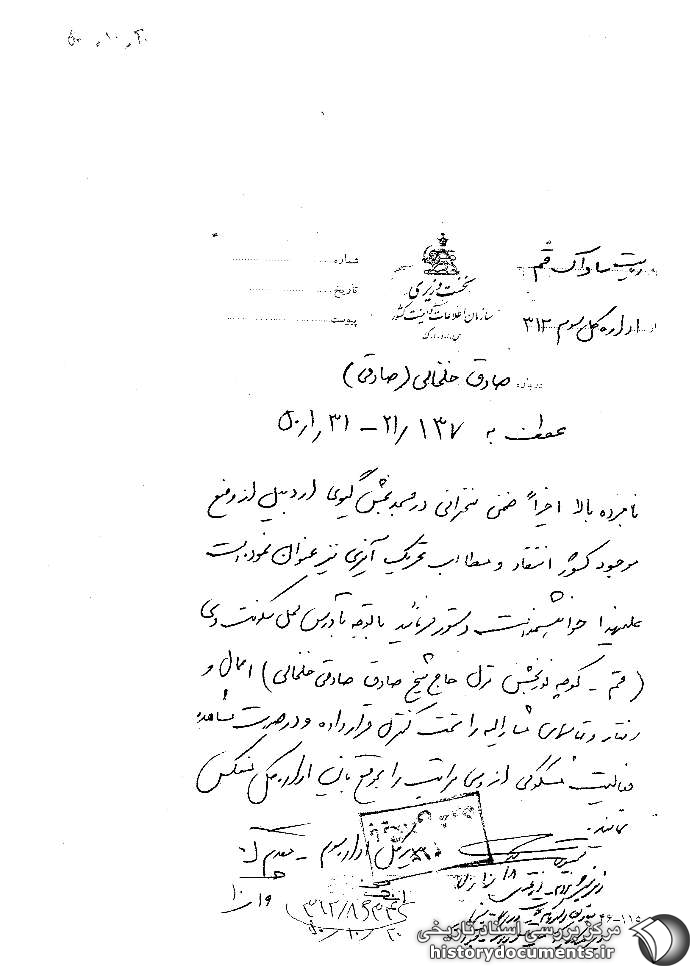 ۵۰,۱۰,۲۰
ریاست ساواک قم
شماره
نخست وزیری
تاریخ
سازمان اطلاعات و امنیت کشور
پیوست
از اداره کل سوم ۳۱۲
درباره صادق خلخالی (صادقی)
عطف به ۲۱/۱۳۷ - ۵۰/۱/۳۱
نامبرده بالا اخیراً ضمن سخنرانی در مسجد شش گیوی اردبیل از وضع
موجود کشور انتقاد و مطالب تحریک آمیزی نیز عنوان نموده است
علیهذا خواهشمند است دستور فرمائید با توجه به آدرس محل سکونت وی
(قم - کوچه نوبخش منزل حاج شیخ صادق صادقی خلخالی) اعمال و
رفتار و تماسهای مشارالیه را تحت کنترل قرار داده و در صورت مشاهده
فعالیت مشکوکی از وی مراتب را بموقع باین اداره کل منعکس
نمایند.
مدیر کل اداره سوم - مقدم
۳۱۲/
مرکز بررسی اسناد تاریخی
historydocuments.ir